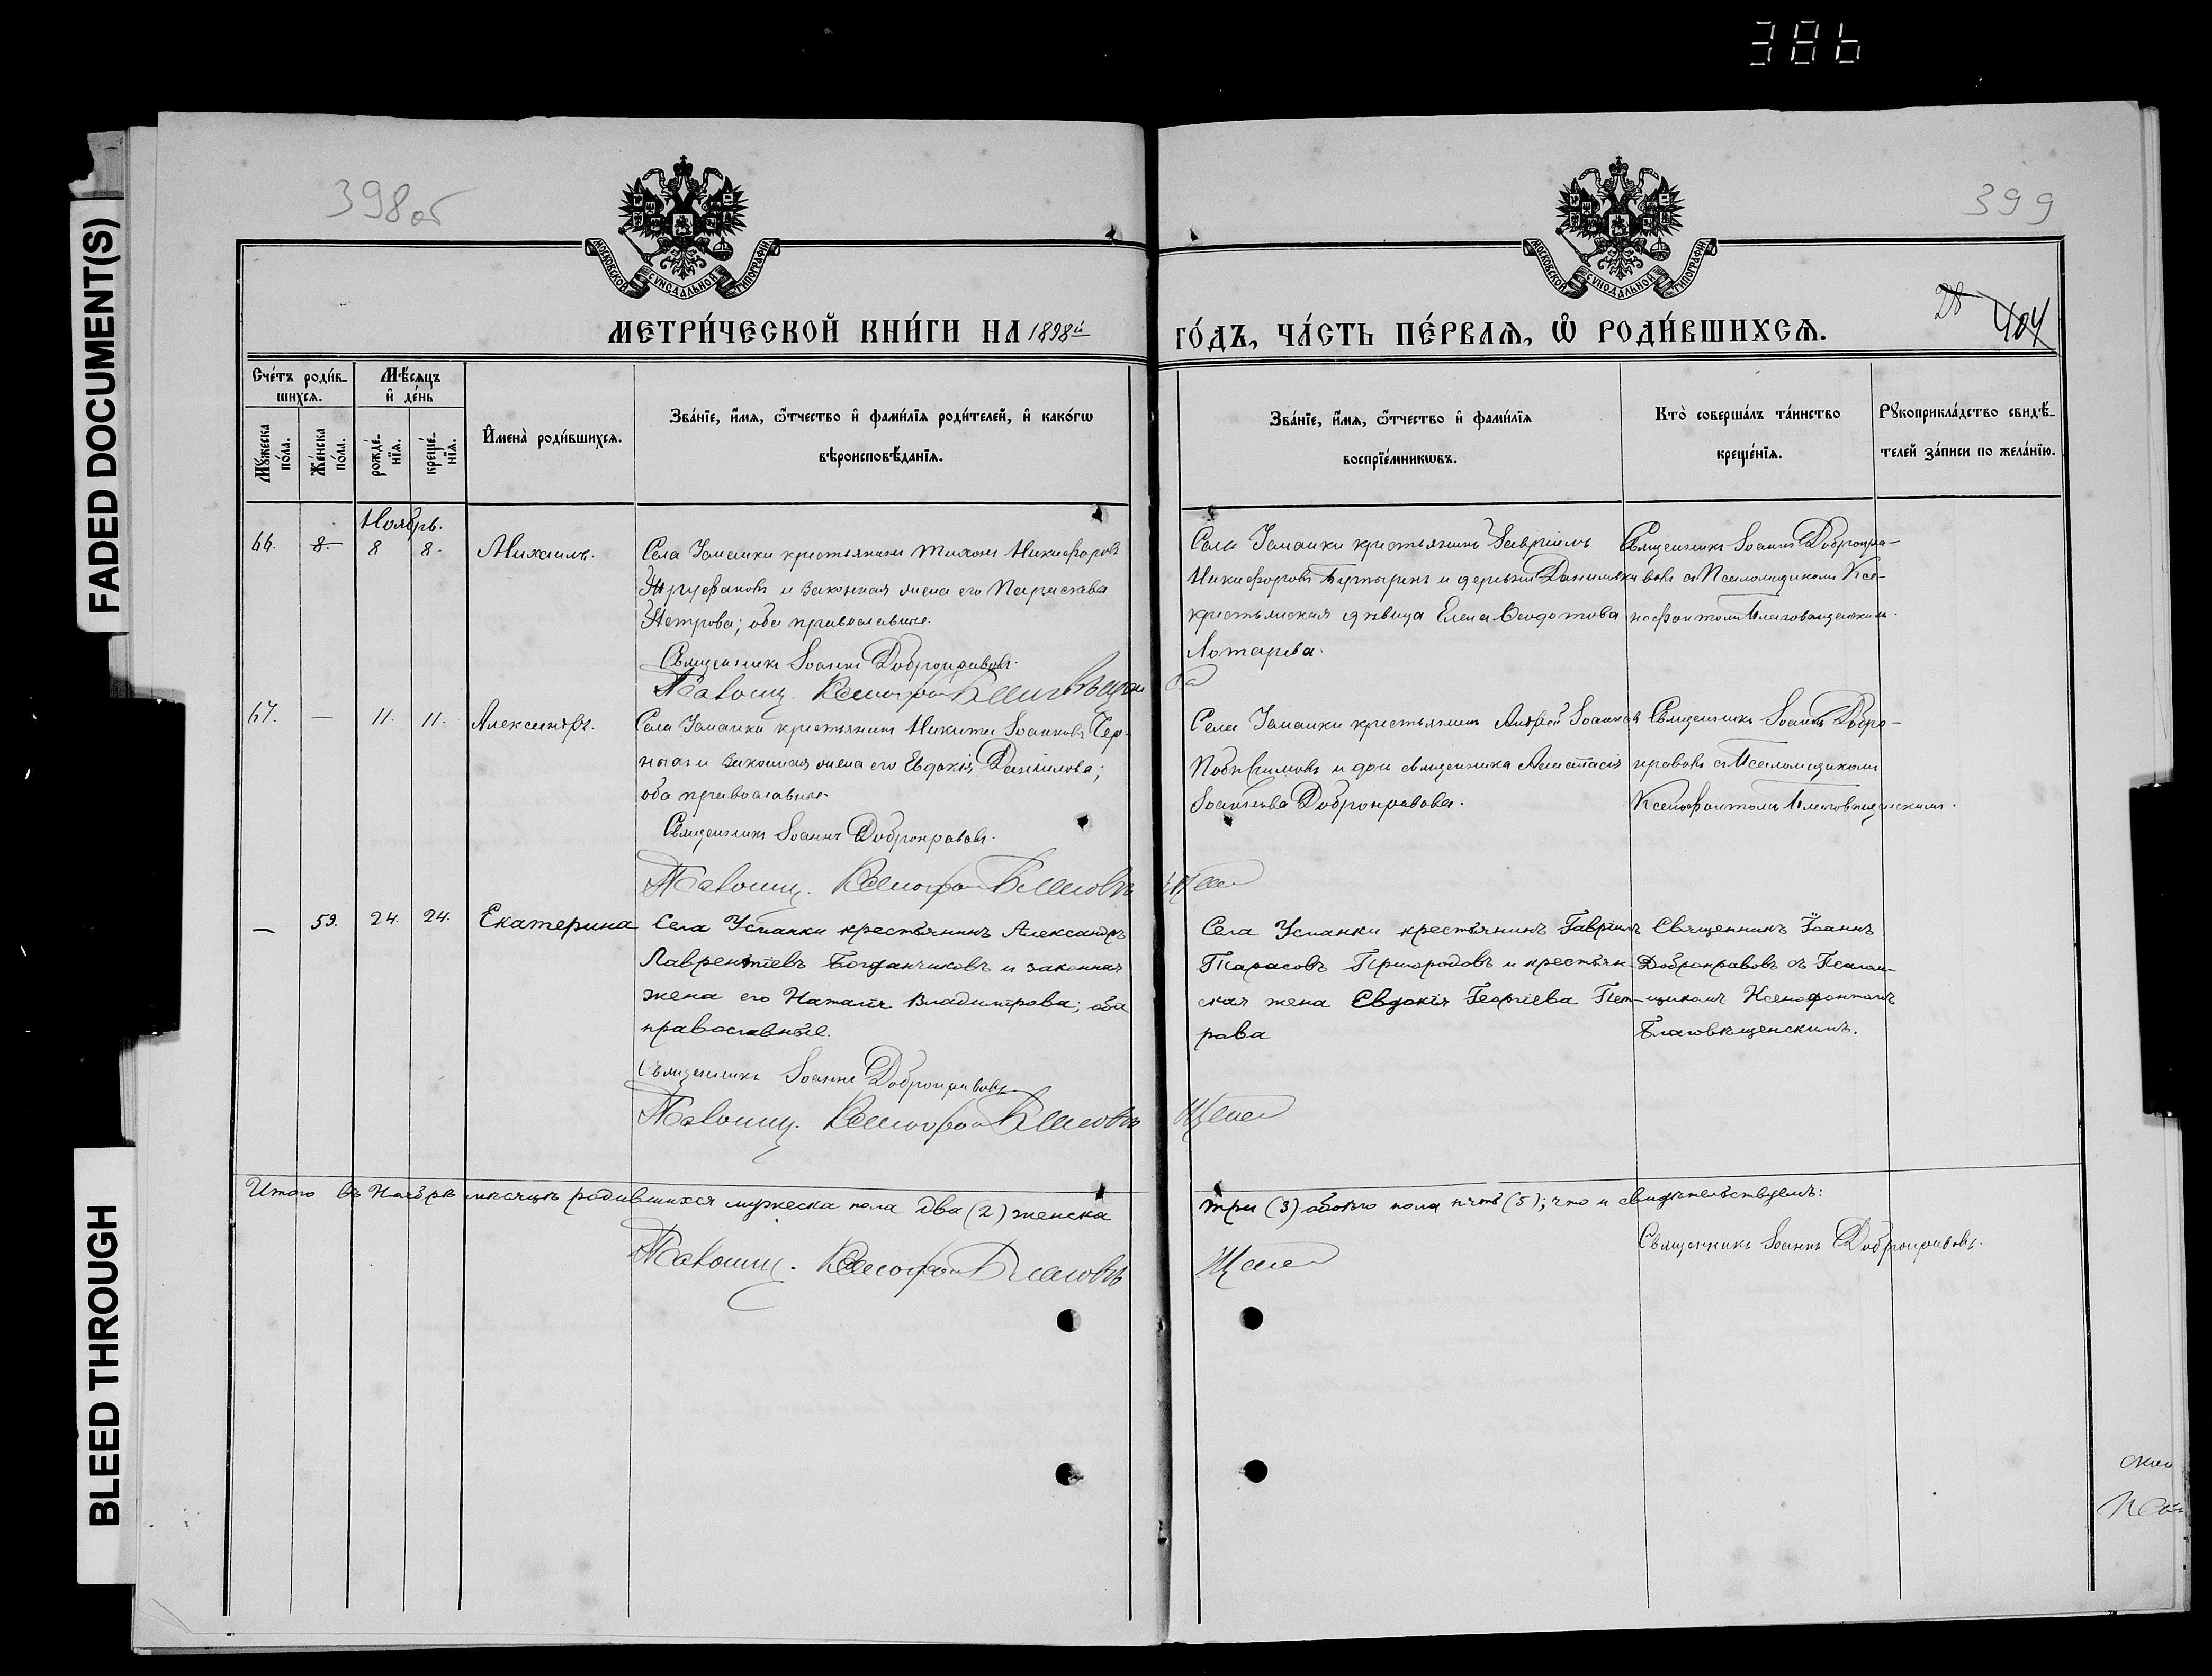 386
FADED DOCUMENT(S)
BLEED THROUGH
398об
399
МОСКОВСКОЙ СУНОДАЛЬНОЙ ТИПОГРАФИИ
МОСКОВСКОЙ СУНОДАЛЬНОЙ ТИПОГРАФИИ
28 404
МЕТРИ́ЧЕСКОЙ КНИ́ГИ НА 1898й
ГО́ДЪ, ЧА́СТЬ ПЕ́РВАѦ, Ѿ РОДИ́ВШИХСѦ.
Сче́тъ роди́в-
шихсѧ.
Мѣ́сѧцъ
и҆ де́нь
Мꙋ́жеска по́ла.
Же́нска по́ла.
рожде́-нїѧ.
креще́-нїѧ.
И҆мена̀ роди́вшихсѧ.
Зва́нїе, и҆́мѧ, ѻ҆́тчество и҆ фами́лїѧ роди́телей, и҆ како́гѡ
вѣроисповѣ́данїѧ.
Зва́нїе, и҆́мѧ, ѻ҆́тчество и҆ фами́лїѧ
воспрїе́мникѡвъ.
Кто̀ соверша́лъ та́инство
креще́нїѧ.
Рꙋкоприкла́дство свидѣ́-
телей за́писи по жела́нїю.
Ноябрь.
66. 8. 8 8. Михаилъ.
Села Успанки крестьянинъ Тихонъ Никифоровъ
и законная жена его Параскева
Петрова; оба православные.
Священникъ Іоаннъ Доброправовъ.
Псаломщ. Ксенофон Благовѣщен
Села Успанки крестьянинъ Гавріилъ
Никифоровъ и деревни Даниловки
крестьянская дѣвица Елена Ѳеодотова
Лотарева.
Священникъ Іоаннъ Добропра-
вовъ съ Псаломщикомъ Ксе-
нофонтомъ Благовѣщенскимъ.
67. — 11. 11. Александръ.
Села Успанки крестьянинъ Никита Іоанновъ Чер-
ныхъ и законная жена его Евдокія Даніилова;
оба православные.
Священникъ Іоаннъ Доброправовъ.
Псаломщ. Ксенофон Благовѣ
щен
Села Успанки крестьянинъ Андрей Іоанновъ
и дочь священника Анастасія
Іоаннова Доброправова.
Священникъ Іоаннъ Добро-
правовъ съ Псаломщикомъ
Ксенофонтомъ Благовѣщенскимъ.
— 59. 24. 24. Екатерина
Села Успанки крестьянинъ Александръ
Лаврентіевъ Богданчиковъ и законная
жена его Наталія Владимірова; оба
православные.
Священникъ Іоаннъ Доброправовъ
Псаломщ. Ксенофон Благовѣ
щен
Села Успанки крестьянинъ Гавріилъ
Тарасовъ Пригородовъ и крестьян-
ская жена Евдокія Георгіева Пет-
рова
Священникъ Іоаннъ
Доброправовъ съ Псалом-
щикомъ Ксенофонтомъ
Благовѣщенскимъ.
Итого въ Ноябрѣ мѣсяцѣ родившихся мужеска пола два (2) женска
три (3) обоего пола пять (5); что и свидѣтельствуемъ:
Священникъ Іоаннъ Доброправовъ.
Псаломщ. Ксенофон Благовѣ
щен